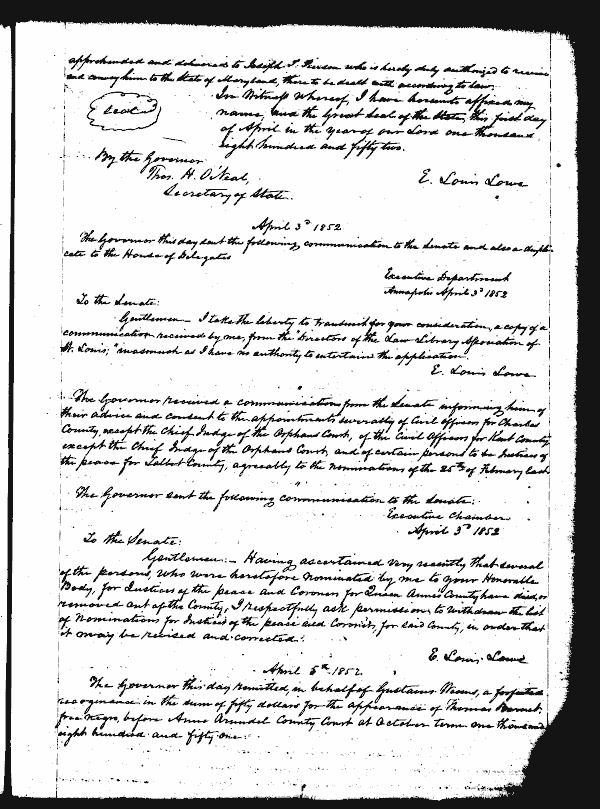 apprehended and delivered to Joseph T. Pierson who is hereby duly authorized to receive
and convey him to the State of Maryland, there to be dealt with according to law.
In Witness whereof, I have hereunto affixed my
name, and the Great Seal of the State, this first day
of April in the year of our Lord one thousand
eight hundred and fifty two.
Seal
By the Governor
Thos. H. O'Neal,
Secretary of State.
E. Louis Lowe
April 3d 1852
The Governor this day sent the following communication to the Senate and also a dupli-
cate to the House of Delegates
Executive Department
Annapolis April 3d 1852
To the Senate:
Gentlemen – I take the liberty to transmit for your consideration, a copy of a
communication received by me, from the "Directors of the Law Library Association of
St. Louis," inasmuch as I have no authority to entertain the application.
E. Louis Lowe
The Governor received a communication from the Senate informing him of
their advice and consent to the appointments severally of Civil Officers for Charles
County, except the Chief Judge of the Orphans Court, of the Civil Officers for Kent County,
except the Chief Judge of the Orphans Court, and of certain persons to be Justices of
the peace for Talbot County, agreeably to the nominations of the 25th of February last
The Governor sent the following communication to the Senate:
Executive Chamber
April 3d 1852
To the Senate:
Gentlemen:– Having ascertained very recently that several
of the persons, who were heretofore nominated by me to your Honorable
Body, for Justices of the peace and Coroners for Queen Anne's County have died, or
removed out of the County, I respectfully ask permission to withdraw the list
of Nominations for Justices of the peace and Coroners, for said County, in order that
it may be revised and corrected.
E. Louis Lowe
April 5th 1852.
The Governor this day remitted, in behalf of Gustavus Weems, a forfeited
recognizance in the sum of fifty dollars for the appearance of Thomas
free negro, before Anne Arundel County Court at October term one thousand
eight hundred and fifty one.